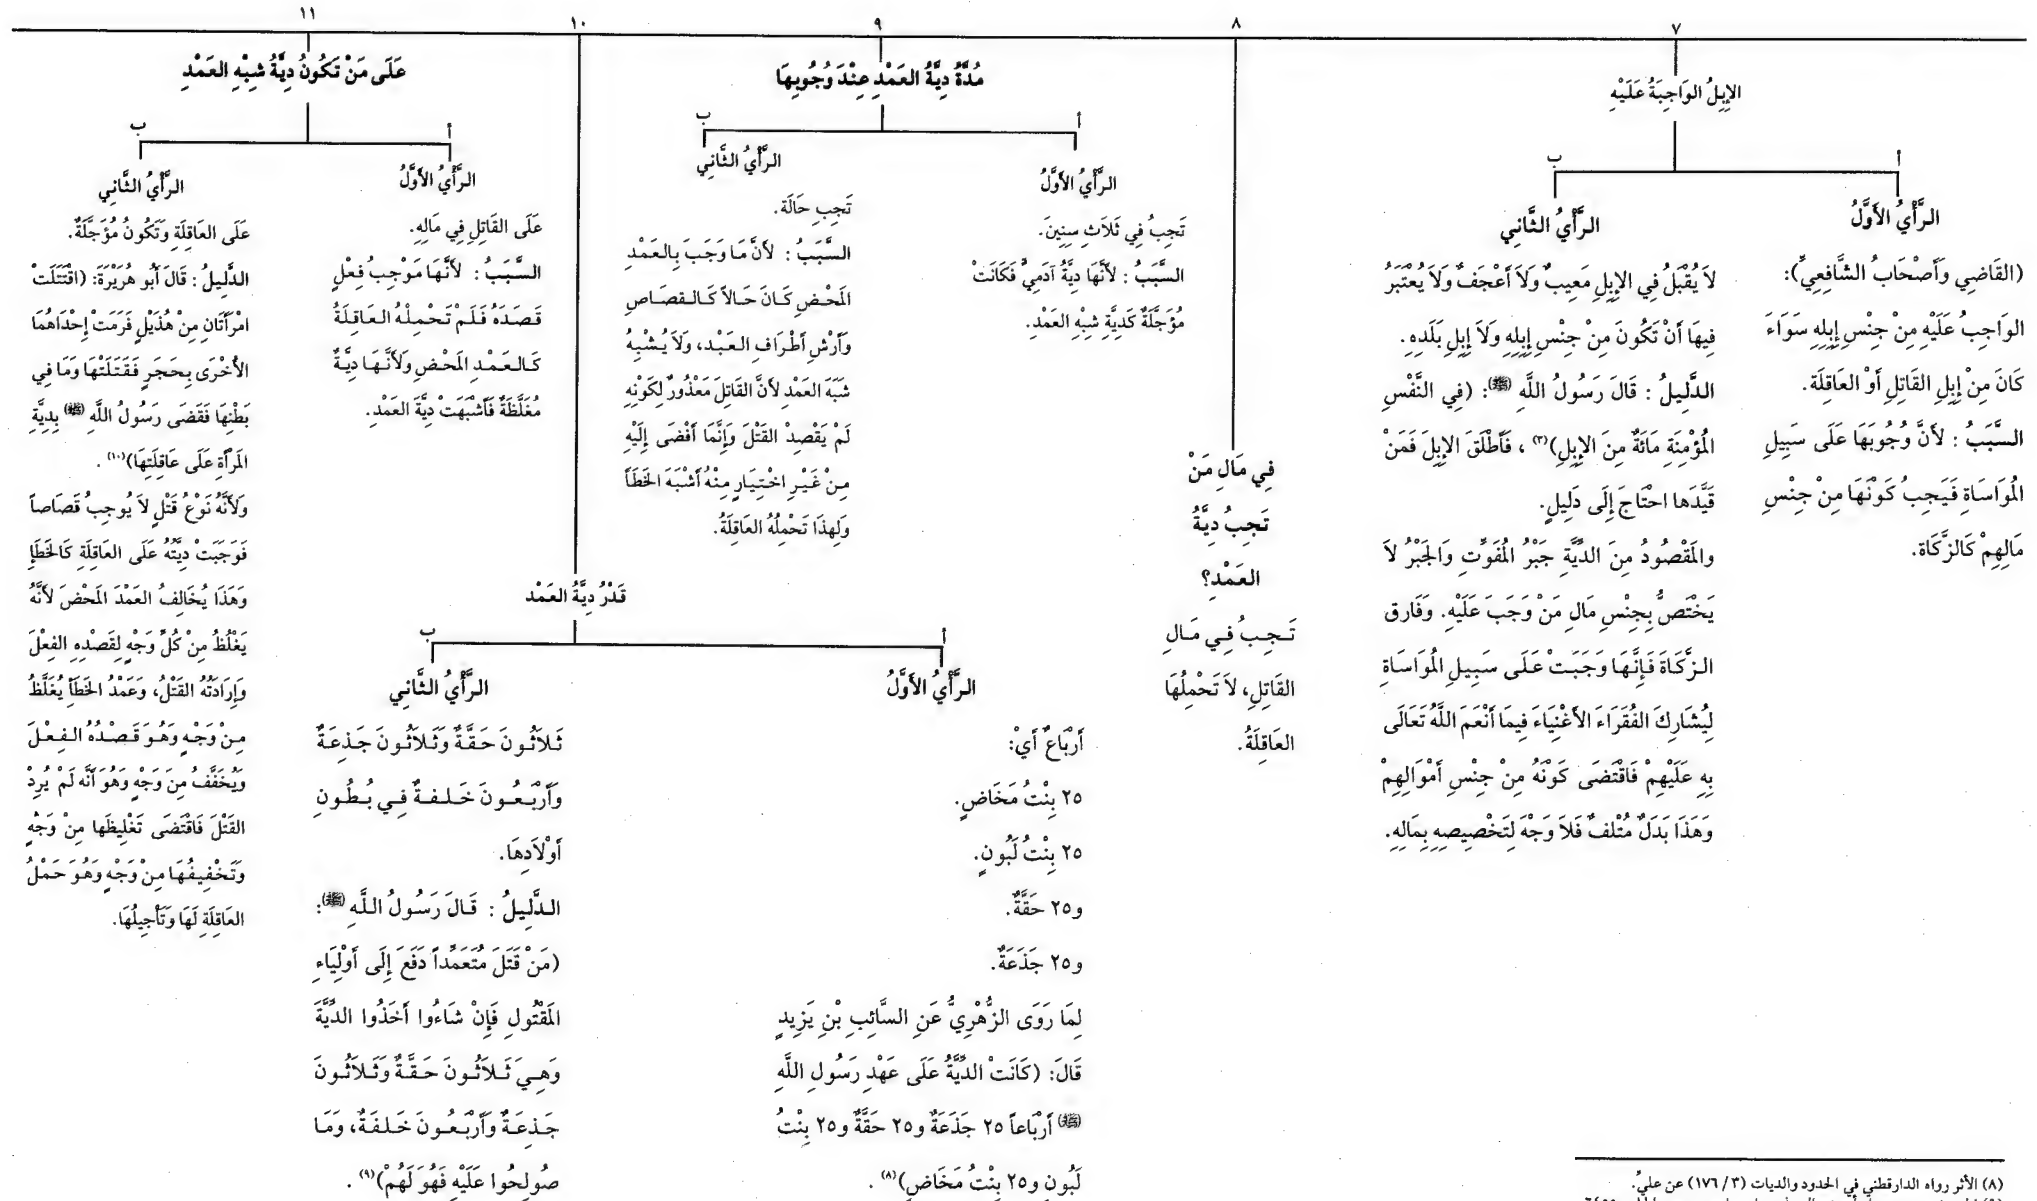 ٧
الإِبِلُ الوَاجِبَةُ عَلَيْهِ
أ
الرَّأْيُ الأَوَّلُ
(القَاضِي وَأَصْحَابُ الشَّافِعِيِّ):
الوَاجِبُ عَلَيْهِ مِنْ جِنْسِ إِبِلِهِ سَوَاءَ
كَانَ مِنْ إِبِلِ القَاتِلِ أَوْ العَاقِلَةِ.
السَّبَبُ : لأَنَّ وُجُوبَهَا عَلَى سَبِيلِ
المُوَاسَاةِ فَيَجِبُ كَوْنُهَا مِنْ جِنْسِ
مَالِهِمْ كَالزَّكَاةِ.
ب
الرَّأْيُ الثَّانِي
لاَ يُقْبَلُ فِي الإِبِلِ مَعِيبٌ وَلاَ أَعْجَفٌ وَلاَ يُعْتَبَرُ
فِيهَا أَنْ تَكُونَ مِنْ جِنْسِ إِبِلِهِ وَلاَ إِبِلِ بَلَدِهِ.
الدَّلِيلُ : قَالَ رَسُولُ اللَّهِ (ﷺ): (فِي النَّفْسِ
المُؤْمِنَةِ مَائَةٌ مِنَ الإِبِلِ)(٣) ، فَأَطْلَقَ الإِبِلَ فَمَنْ
قَيَّدَهَا احْتَاجَ إِلَى دَلِيلٍ.
والمَقْصُودُ مِنَ الدِّيَّةِ جَبْرُ المُفَوَّتِ وَالجَبْرُ لاَ
يَخْتَصُّ بِجِنْسِ مَالِ مَنْ وَجَبَ عَلَيْهِ. وَفَارق
الزَّكَاةَ فَإِنَّهَا وَجَبَتْ عَلَى سَبِيلِ المُوَاسَاةِ
لِيُشَارِكَ الفُقَرَاءَ الأَغْنِيَاءَ فِيمَا أَنْعَمَ اللَّهُ تَعَالَى
بِهِ عَلَيْهِمْ فَاقْتَضَى كَوْنَهُ مِنْ جِنْسِ أَمْوَالِهِمْ
وَهَذَا بَدَلٌ مُتْلفٌ فَلاَ وَجْهَ لِتَخْصِيصِهِ بِمَالِهِ.
٨
فِي مَالِ مَنْ
تَجِبُ دِيَّةُ
العَمْدِ؟
تَجِبُ فِي مَالِ
القَاتِلِ، لاَ تَحْمِلُهَا
العَاقِلَةُ.
٩
مُدَّةُ دِيَّةُ العَمْدِ عِنْدَ وُجُوبِهَا
أ
الرَّأْيُ الأَوَّلُ
تَجِبُ فِي ثَلاَثِ سِنِينَ.
السَّبَبُ : لأَنَّهَا دِيَّةُ آدَمِيٍّ فَكَانَتْ
مُؤَجَّلَةٌ كَدِيَّةِ شِبْهِ العَمْدِ.
ب
الرَّأْيُ الثَّانِي
تَجِب حَالَة.
السَّبَبُ : لأَنَّ مَا وَجَبَ بِالعَمْدِ
المَحْضِ كَانَ حَالاً كَالقِصَاصِ
وَأَرْشِ أَطْرَافِ العَبْدِ، وَلاَ يُشْبِهُ
شَبَهَ العَمْدِ لأَنَّ القَاتِلَ مَعْذُورٌ لِكَوْنِهِ
لَمْ يَقْصِدْ القَتْلَ وَإِنَّمَا أَفْضَى إِلَيْهِ
مِنْ غَيْرِ اخْتِيَارٍ مِنْهُ أَشْبَهَ الخَطَأَ
وَلِهذَا تَحْمِلُهُ العَاقِلَةُ.
١٠
قَدْرُ دِيَّةُ العَمْد
أ
الرَّأْيُ الأَوَّلُ
أَرْبَاعٌ أَيْ:
٢٥ بِنْتُ مَخَاضٍ.
٢٥ بِنْتُ لَبُونٍ.
و٢٥ حَقَّةٌ.
و٢٥ جَذَعَةٌ.
لِمَا رَوَى الزُّهْرِيُّ عَنِ السَّائِبِ بْنِ يَزِيدٍ
قَالَ: (كَانَتْ الدِّيَّةُ عَلَى عَهْدِ رَسُولِ اللَّهِ
(ﷺ) أَرْبَاعاً ٢٥ جَذَعَةٌ و٢٥ حَقَّةٌ و٢٥ بِنْتُ
لَبُونٍ و٢٥ بِنْتُ مَخَاضٍ)(٨) .
ب
الرَّأْيُ الثَّانِي
ثَلاَثُونَ حَقَّةٌ وَثَلاَثُونَ جَذعَةٌ
وَأَرْبَعُونَ خَلفةٌ فِي بُطُونِ
أَوْلاَدِهَا.
الدَّلِيلُ : قَالَ رَسُولُ اللَّهِ (ﷺ):
(مَنْ قَتَلَ مُتَعَمِّداً دَفَعَ إِلَى أَوْلِيَاءِ
المَقْتُولِ فَإِنْ شَاءُوا أَخَذُوا الدِّيَّةَ
وَهِيَ ثَلاَثُونَ حَقَّةٌ وَثَلاَثُونَ
جَذعَةٌ وَأَرْبَعُونَ خَلفَةٌ، وَمَا
صُولِحُوا عَلَيْهِ فَهُوَ لَهُمْ)(٩) .
١١
عَلَى مَنْ تَكُونُ دِيَّةُ شِبْهِ العَمْدِ
أ
الرَّأْيُ الأَوَّلُ
عَلَى القَاتِلِ فِي مَالِهِ.
السَّبَبُ : لأَنَّهَا مَوْجِبُ فِعْلٍ
قَصَدَهُ فَلَمْ تَحْمِلْهُ العَاقِلَةُ
كَالعَمْدِ المَحْضِ وَلأَنَّهَا دِيَّةٌ
مُغَلَّظَةٌ فَأَشْبَهَتْ دِيَّةَ العَمْدِ.
ب
الرَّأْيُ الثَّانِي
عَلَى العَاقِلَةِ وَتَكُونُ مُؤَجَّلَةٌ.
الدَّلِيلُ : قَالَ أَبُو هُرَيْرَةَ: (اقْتَتَلَتْ
امْرَأَتَان مِنْ هُذَيْلٍ فَرَمَتْ إِحْدَاهُمَا
الأُخْرَى بِحَجَرٍ فَقَتَلَتْهَا وَمَا فِي
بَطْنِهَا فَقَضَى رَسُولُ اللَّهِ (ﷺ) بِدِيَّةِ
المَرْأَةِ عَلَى عَاقِلَتِهَا)(١٠) .
وَلأَنَّهُ نَوْعُ قَتْلٍ لاَ يُوجِبُ قَصَاصاً
فَوَجَبَتْ دِيَّتُهُ عَلَى العَاقِلَةِ كَالخَطَإِ
وَهَذَا يُخَالِفُ العَمْدَ المَحْضَ لأَنَّهُ
يَغْلُظُ مِنْ كُلِّ وَجْهٍ لِقَصْدِهِ الفِعْلَ
وَإِرَادَتُهُ القَتْلُ، وَعَمْدُ الخَطَأِ يُغَلَّظُ
مِنْ وَجْهٍ وَهُوَ قَصْدُهُ الفِعْلَ
وَيُخَفَّفُ مِنَ وَجْهٍ وَهُوَ أَنَّه لَمْ يُرِدْ
القَتْلَ فَاقْتَضَى تَغْلِيظَهَا مِنْ وَجْهٍ
وَتَخْفِيفُهَا مِنْ وَجْهٍ وَهُوَ حَمْلُ
العَاقِلَةِ لَهَا وَتَأْجِيلُهَا.
(٨) الأثر رواه الدارقطني في الحدود والديات (٣/ ١٧٦) عن عليُ.